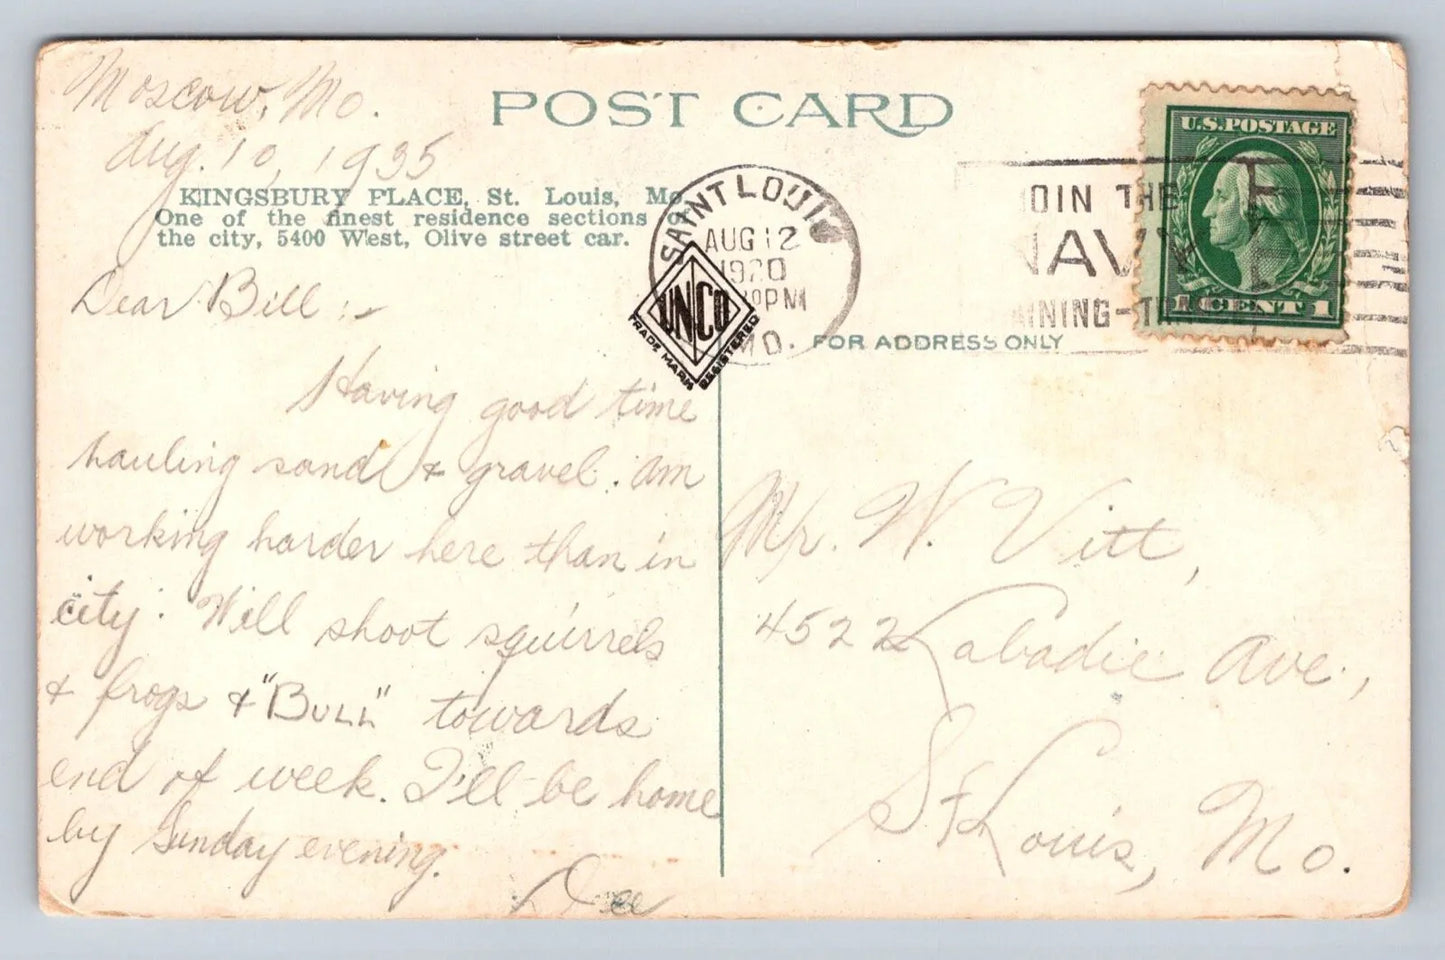 Moscow, Mo.
Aug. 10, 1935
POST CARD
KINGSBURY PLACE, St. Louis, Mo.
One of the finest residence sections of
the city, 5400 West, Olive street car.
Dear Bill:-
Having good time
hauling sand & gravel. Am
working harder here than in
city. Will shoot squirrels
& frogs & "BULL" towards
end of week. I'll be home
by Sunday evening.
Dee
SAINT LOUIS
AUG 12
1920
PM
MO.
UNCO
TRADE MARK REGISTERED
JOIN THE
NAVY
U.S. POSTAGE
1 CENT 1
FOR ADDRESS ONLY
Mr. W. Vitt,
4522 Labadie Ave.,
St Louis, Mo.